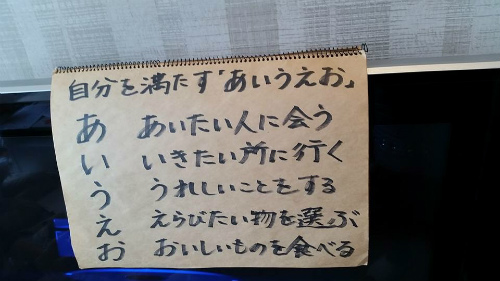 自分を満たす「あいうえお」
あ あいたい人に会う
い いきたい所に行く
う うれしいことをする
え えらびたい物を選ぶ
お おいしいものを食べる